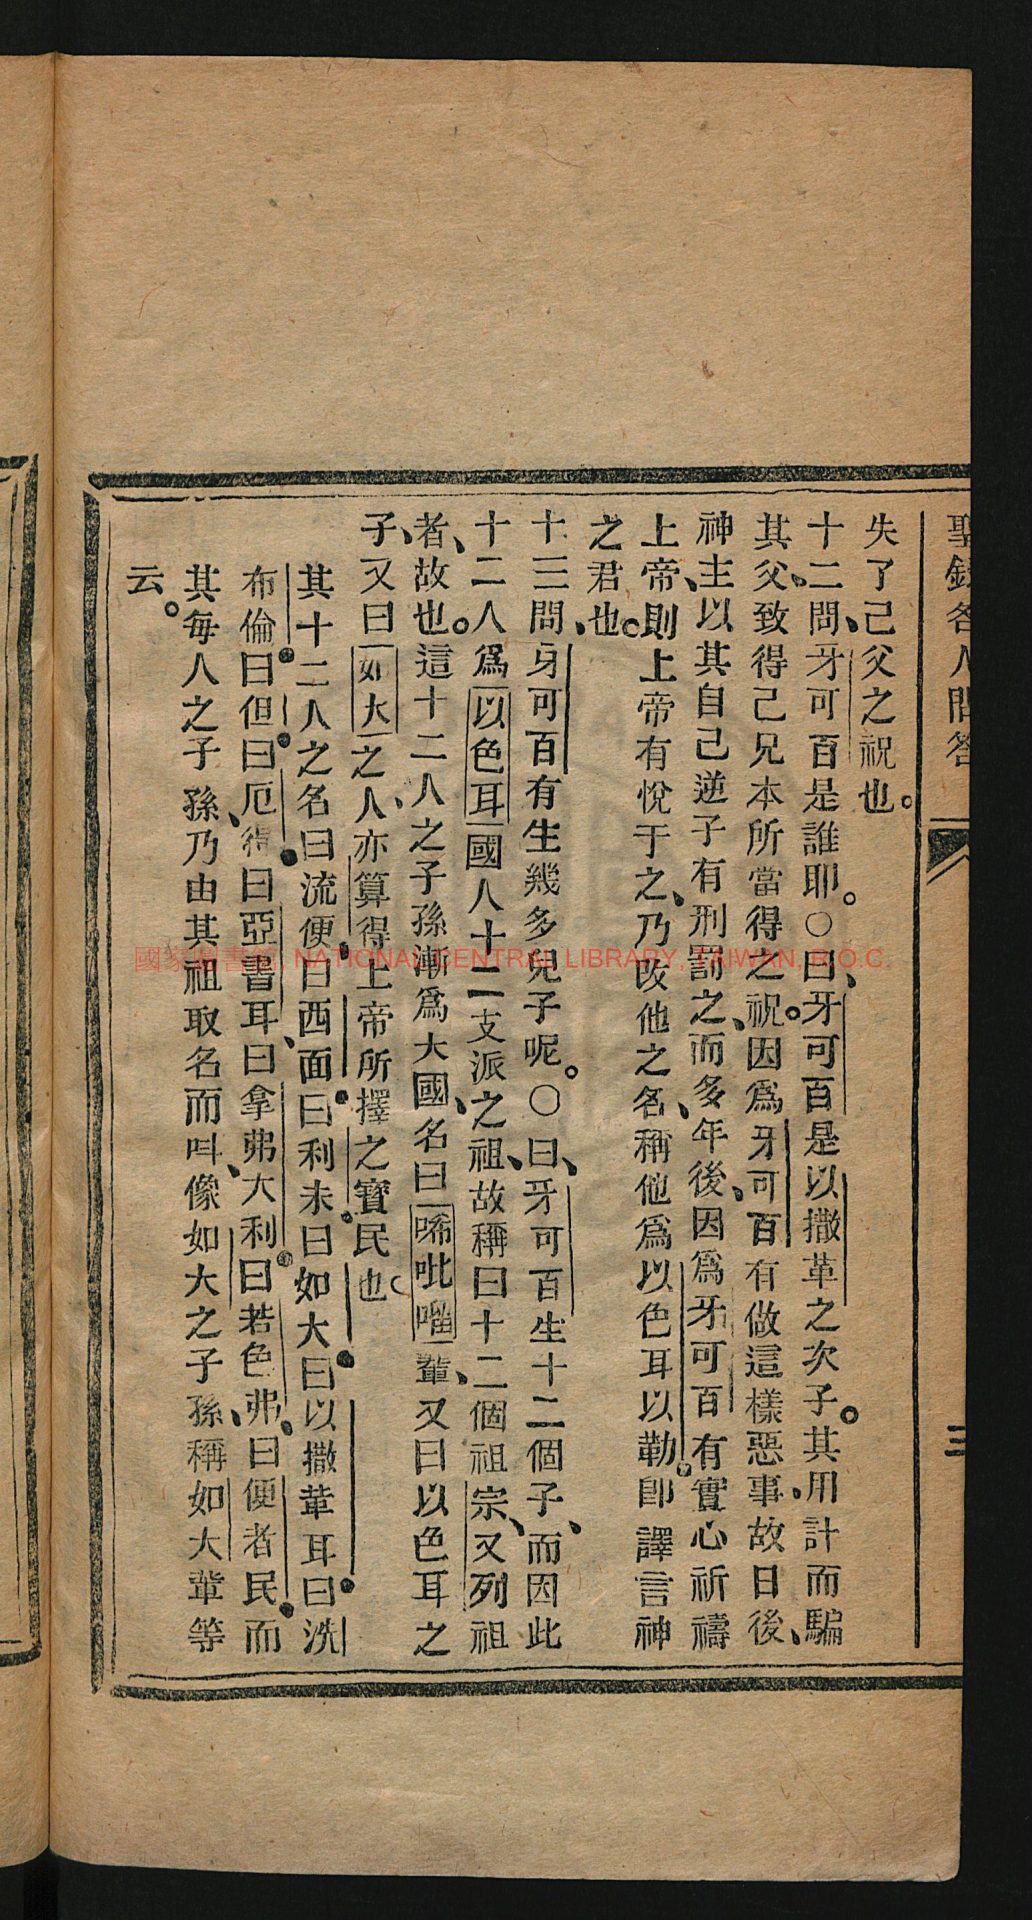 聖錄各人問答
三
失了己父之祝也。
十二問、牙可百是誰耶。○曰、牙可百是以撒革之次子。其用計而騙
其父、致得己兄本所當得之祝。因爲牙可百有做這樣惡事、故日後、
神主以其自己逆子有刑罰之、而多年後、因爲牙可百有實心祈禱
上帝、則上帝有悅于之、乃改他之名、稱他爲以色耳以勒。卽譯言神
之君也。
十三問、牙可百有生幾多兒子呢。○曰、牙可百生十二個子、而因此
十二人爲以色耳國人十二支派之祖、故稱曰十二個祖宗、又列祖
者、故也。這十二人之子孫漸爲大國、名曰唏吡𠺕輩、又曰以色耳之
子、又曰如大之人、亦算得上帝所擇之寶民也。
其十二人之名曰流便、曰西面。曰利未。曰如大。曰以撒革耳。曰洗
布倫。曰但。曰厄得。曰亞書耳、曰拿弗大利。曰若色弗、曰便者民。而
其每人之子孫、乃由其祖取名而叫、像如大之子孫、稱如大輩等
云。
國家圖書館, NATIONAL CENTRAL LIBRARY, TAIWAN, R.O.C.